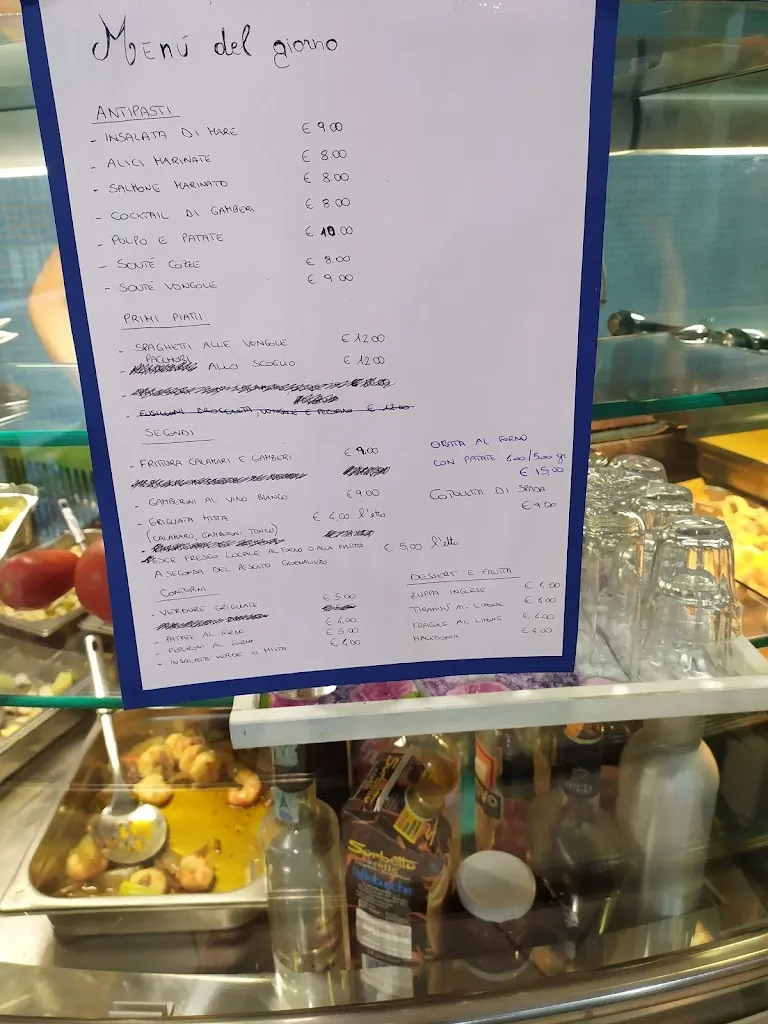 Menú del giorno
ANTIPASTI
- INSALATA DI MARE € 9.00
- ALICI MARINATE € 8.00
- SALMONE MARINATO € 8.00
- COCKTAIL DI GAMBERI € 8.00
- POLPO E PATATE € 10.00
- SOUTÉ COZZE € 8.00
- SOUTÉ VONGOLE € 9.00
PRIMI PIATTI
- SPAGHETTI ALLE VONGOLE € 12.00
PACCHERI
- ALLO SCOGLIO € 12.00
VONGOLE E € 12.00
SECONDI
- FRITTURA CALAMARI E GAMBERI € 9.00
- GAMBERONI AL VINO BIANCO € 9.00
- GRIGLIATA MISTA € 4,00 l'etto
(CALAMARO, GAMBERONI, TONNO)
- PESCE FRESCO LOCALE AL FORNO O ALLA € 5,00 l'etto
A SECONDA DEL PESCATO GIORNALIERO
ORATA AL FORNO
CON PATATE 400/500 gr
€ 15,00
COTOLETTA DI SPADA
€ 9.00
CONTORNI
- VERDURE GRIGLIATE € 5.00
- PATATE AL FORNO € 4.00
- PEPERONI AL FORNO € 5.00
- INSALATA VERDE O MISTA € 4.00
DESSERT E FRUTTA
ZUPPA INGLESE € 4.00
TIRAMISÚ AL LIMONE € 4.00
FRAGOLE AL LIMONE € 4.00
MACEDONIA € 4.00
Sorbetto